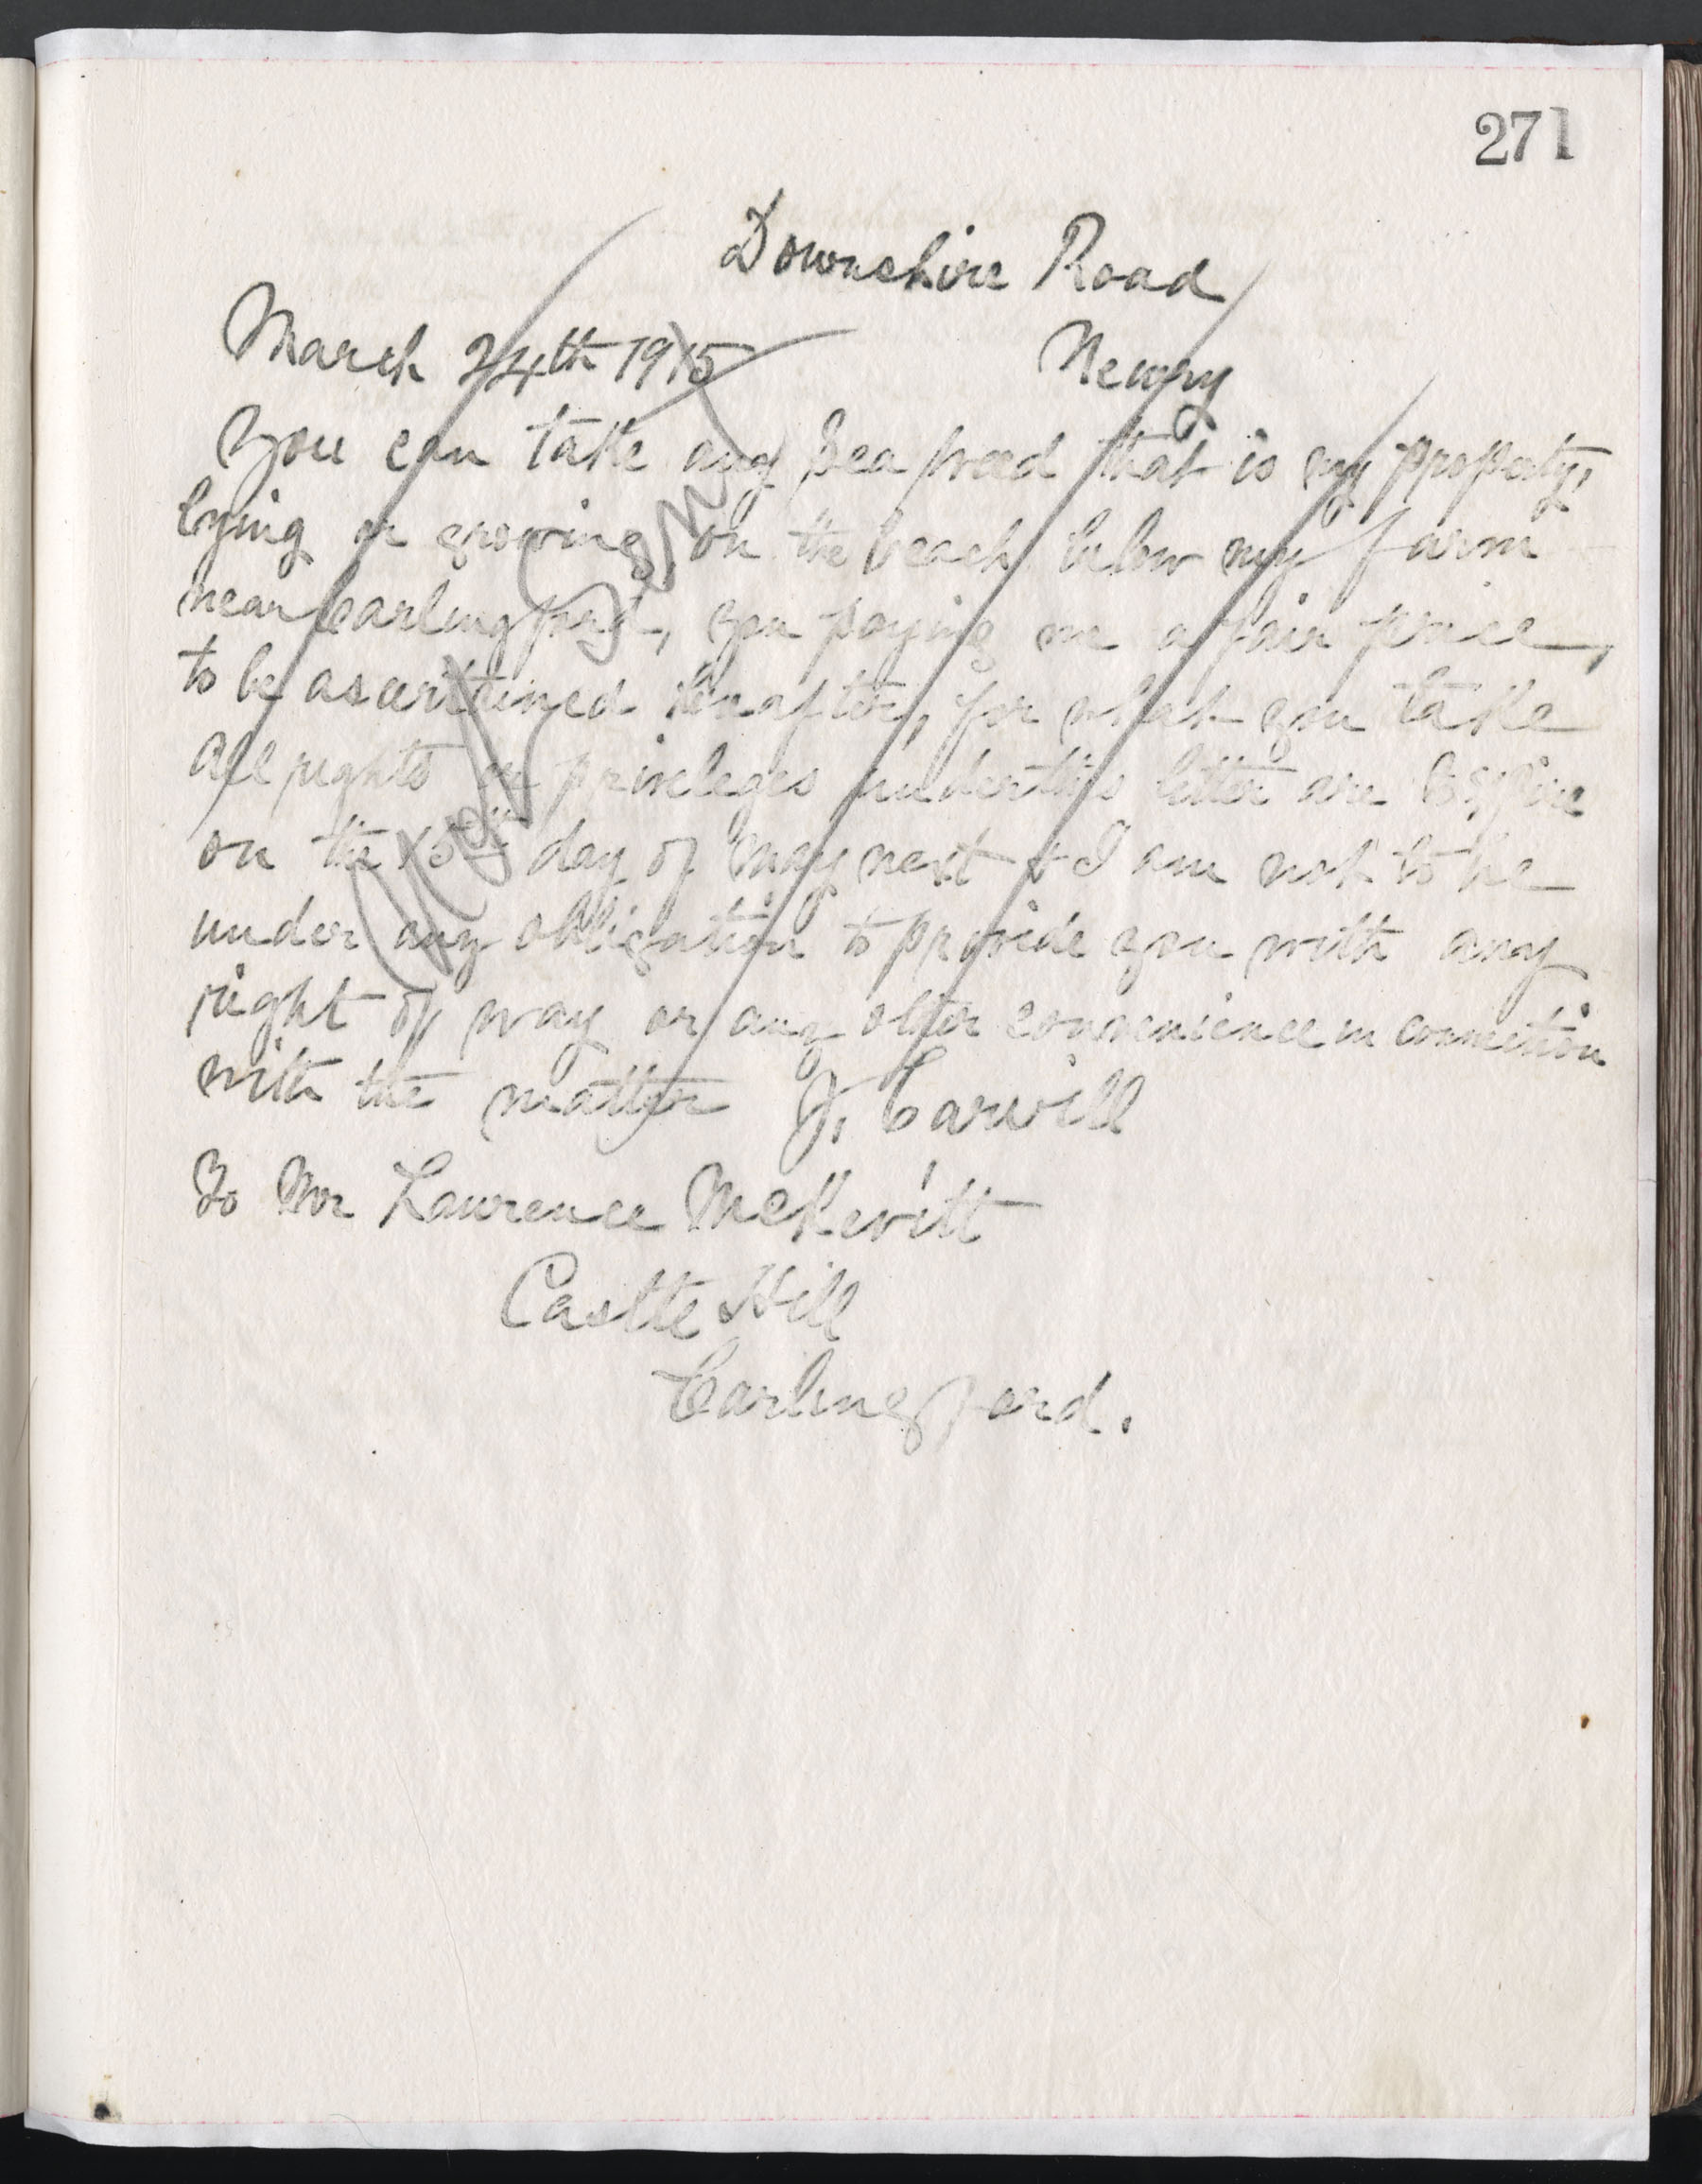 271
Downshire Road
March 24th 1915 Newry
You can take any sea weed that is my property,
lying or growing on the beach below my farm
near Carlingford, you paying me a fair price,
to be ascertained hereafter, for what you take
All rights or privileges under this letter are to expire
on the 15th day of May next & I am not to be
under any obligation to provide you with any
right of way or any other convenience in connection
with the matter J. Carvill
To Mr Lawrence McKevitt
Castle Hill
Carlingford.